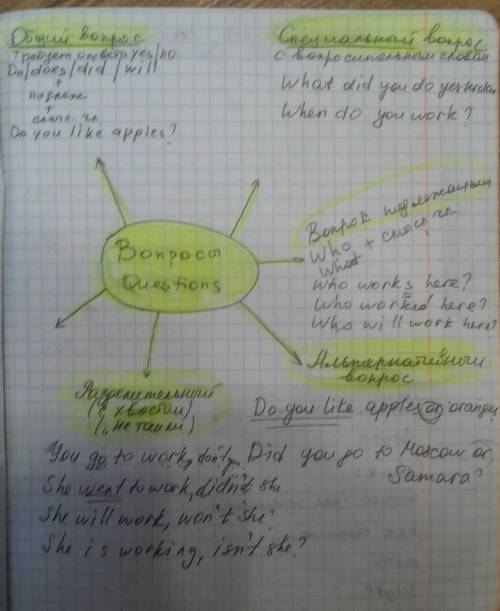 Общий вопрос
Требует ответа yes/no
Do/does/did/will
+
подлеж
+
смысл. гл.
Do you like apples?
Специальный вопрос
с вопросительным словом
What did you do yesterday
When do you work?
Вопросы
Questions
Вопрос к подлежащему
Who + смысл. гл.
What
Who works here?
Who worked here?
Who will work here?
Альтернативный
вопрос
Do you like apples or oranges
Did you go to Moscow or
Samara?
Разделительный
(с хвостом)
(, не так ли)
You go to work, don't
She went to work, didn't she
She will work, won't she?
She is working, isn't she?